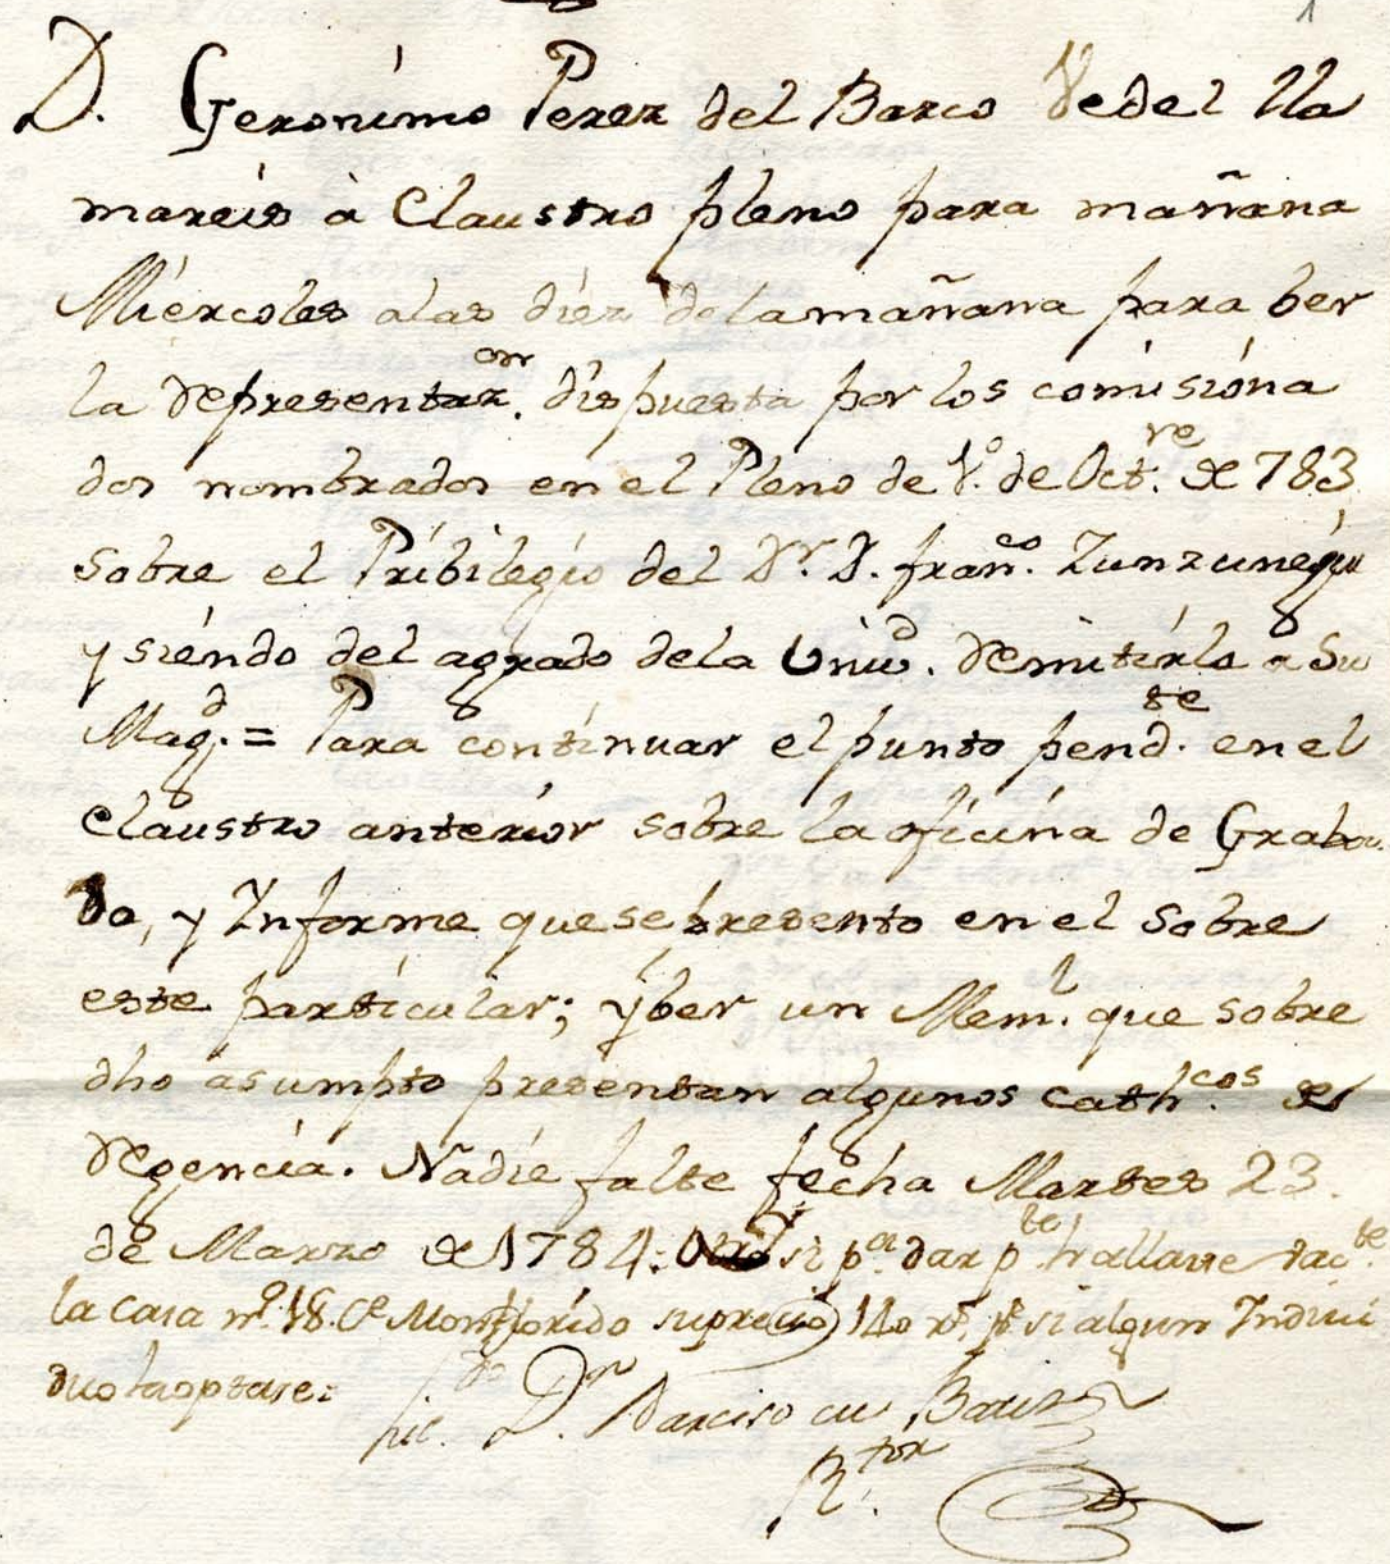 1
D. Geronimo Perez del Barco Vedel lla
mareis à Claustro pleno para mañana
Miercoles a las diez de la mañana para ber
la representaz.on dispuesta por los comisiona
dos nombrados en el Pleno de 1.º de Oct.re de 783
sobre el Pribilegio del Dr. D. fran.co Zunzunegui
y siendo del agrado de la Univ.d remitirla a Su
Mag.d = Para continuar el punto pend.te en el
Claustro anterior sobre la oficina de Graba
do, y Informe que se presento en el sobre
este particular; y ber un Mem.l que sobre
dho asumpto presentan algunos cath.cos de
regencia. Nadie falte fecha Martes 23
de Marzo de 1784: si p.a dar p.te hallarse vac.te
la casa n.º 18. C.e Monflorido su precio 140 r.s p.r si algun Indivi
duo la optase:
Lic.do D.n Narciso de Batiz
R.tor